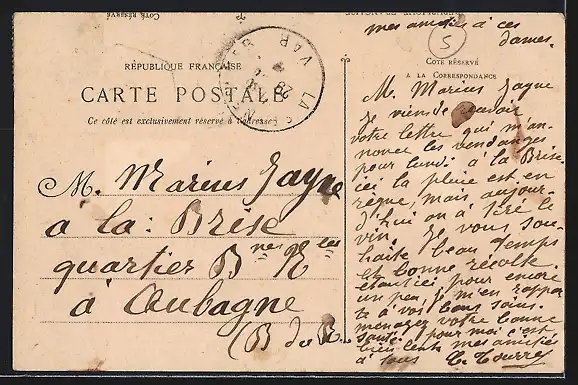 mes amitiés à ces
dames.
5
RÉPUBLIQUE FRANÇAISE
CARTE POSTALE
Ce côté est exclusivement réservé à l'adresse
VAR
LA
COTE RÉSERVÉ
A LA CORRESPONDANCE
M. Marius Jayne
à la: Brise
quartier Bnes Nlles
à Aubagne
(B du R..
M. Marius Jayne
Je viens de
votre lettre qui m'an-
nonce les vendanges
pour lundi à la Brise
ici la pluie est en
règne, mais aujour-
d'hui on a tiré le
vin. Je vous sou-
haite, beau temps
et bonne récolte.
pour encore
un peu je m'en rappor-
te à vos bons soins.
menagez votre bonne
santé! pour moi c'est
bien cent mes amitiés
à tous C. Tourrey